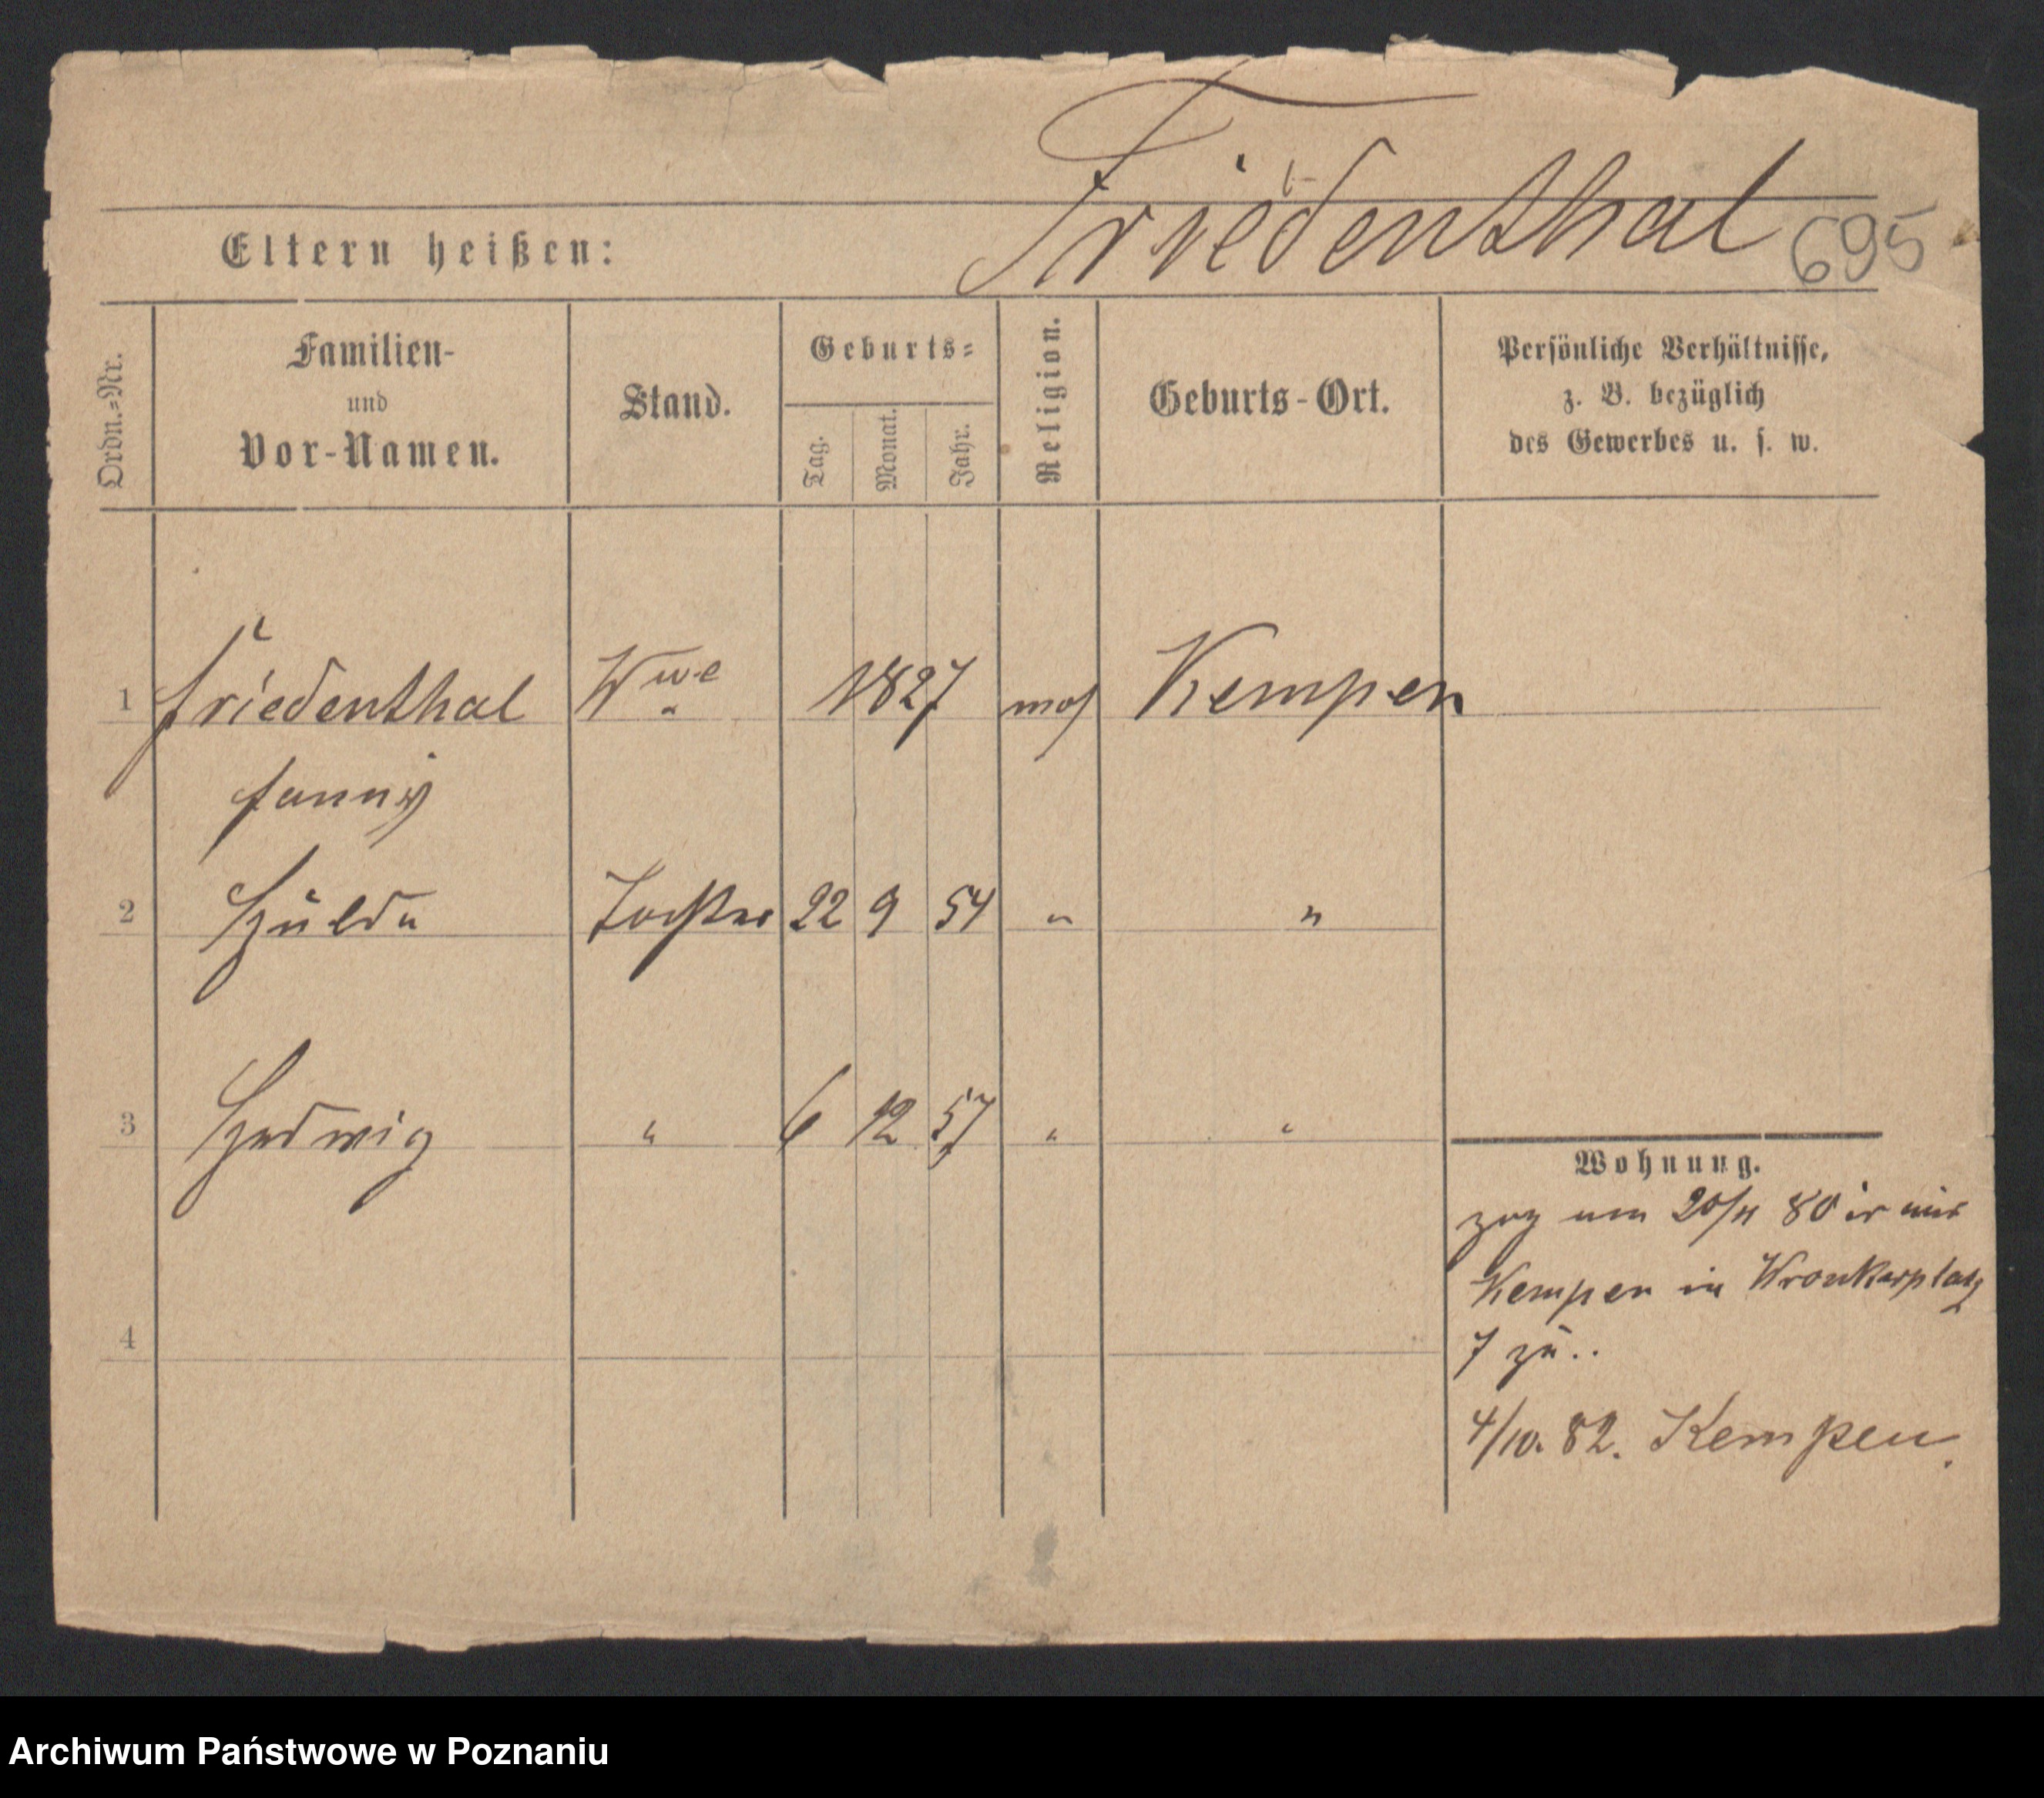 Friedenthal
695
Eltern heißen:
Ordn.=Nr.
Familien-
und
Vor-Namen.
Stand.
Geburts=
Tag.
Monat.
Jahr.
Religion.
Geburts-Ort.
Persönliche Verhältnisse,
z. B. bezüglich
des Gewerbes u. s. w.
1 Friedenthal Wwe 1827 mos Kempen
Fanny
2 Hulda Tochter 22 9 54 " "
3 Hedwig " 6 12 57 " "
Wohnung.
zog am 20/11 80 aus
Kempen in Wronkerplatz
7 zu..
4
4/10. 82. Kempen.
Archiwum Państwowe w Poznaniu